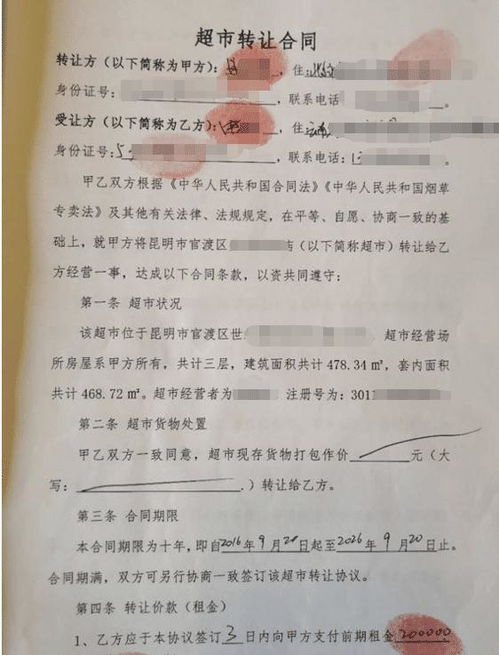 超市转让合同
转让方（以下简称为甲方）：，住：
身份证号：，联系电话
受让方（以下简称为乙方）：，住：
身份证号：5，联系电话：1
甲乙双方根据《中华人民共和国合同法》《中华人民共和国烟草
专卖法》及其他有关法律、法规规定，在平等、自愿、协商一致的基
础上，就甲方将昆明市官渡区（以下简称超市）转让给乙
方经营一事，达成以下合同条款，以资共同遵守：
第一条 超市状况
该超市位于昆明市官渡区世，超市经营场
所房屋系甲方所有，共计三层，建筑面积共计 478.34 ㎡，套内面积
共计 468.72 ㎡。超市经营者为 注册号为：3011
第二条 超市货物处置
甲乙双方一致同意，超市现存货物打包作价 元（大
写： .）转让给乙方。
第三条 合同期限
本合同期限为十年，即自2016年9月20日起至2026年9月20日止。
合同期满，双方可另行协商一致签订该超市转让协议。
第四条 转让价款（租金）
1、乙方应于本协议签订3日内向甲方支付前期租金200000